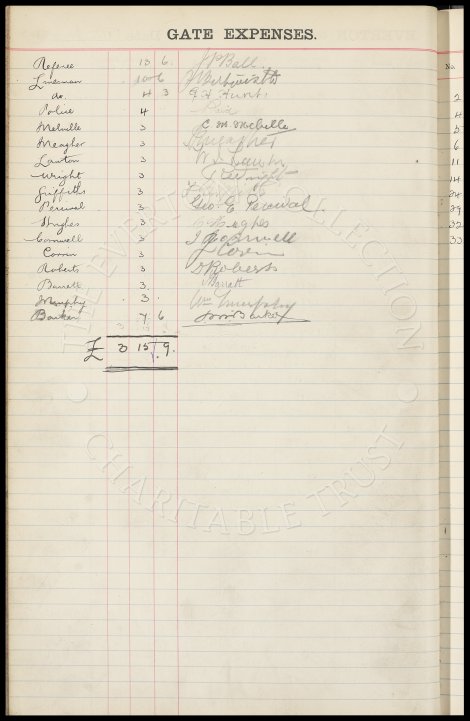 GATE EXPENSES.
Referee 15 6. J P Ball
Linesman 10 6
do. 4 3 Hunt
Police 4 Paid
Melville 3 C. M. Melville
Meagher 3
Lawton 3
Wright 3 Wright
Griffiths 3
Percival 3 Geo. E. Percival
Hughes 3 Hughes
Cornwell 3 J Cornwell
3
Roberts 3 Roberts
Barrett 3 Barratt
Murphy 3 Wm Murphy
Barker 7 6 Barker
£ 3 15 9.
No.
2
4
5
6
11
14
24
29
32
33
THE EVERTON COLLECTION
CHARITABLE TRUST